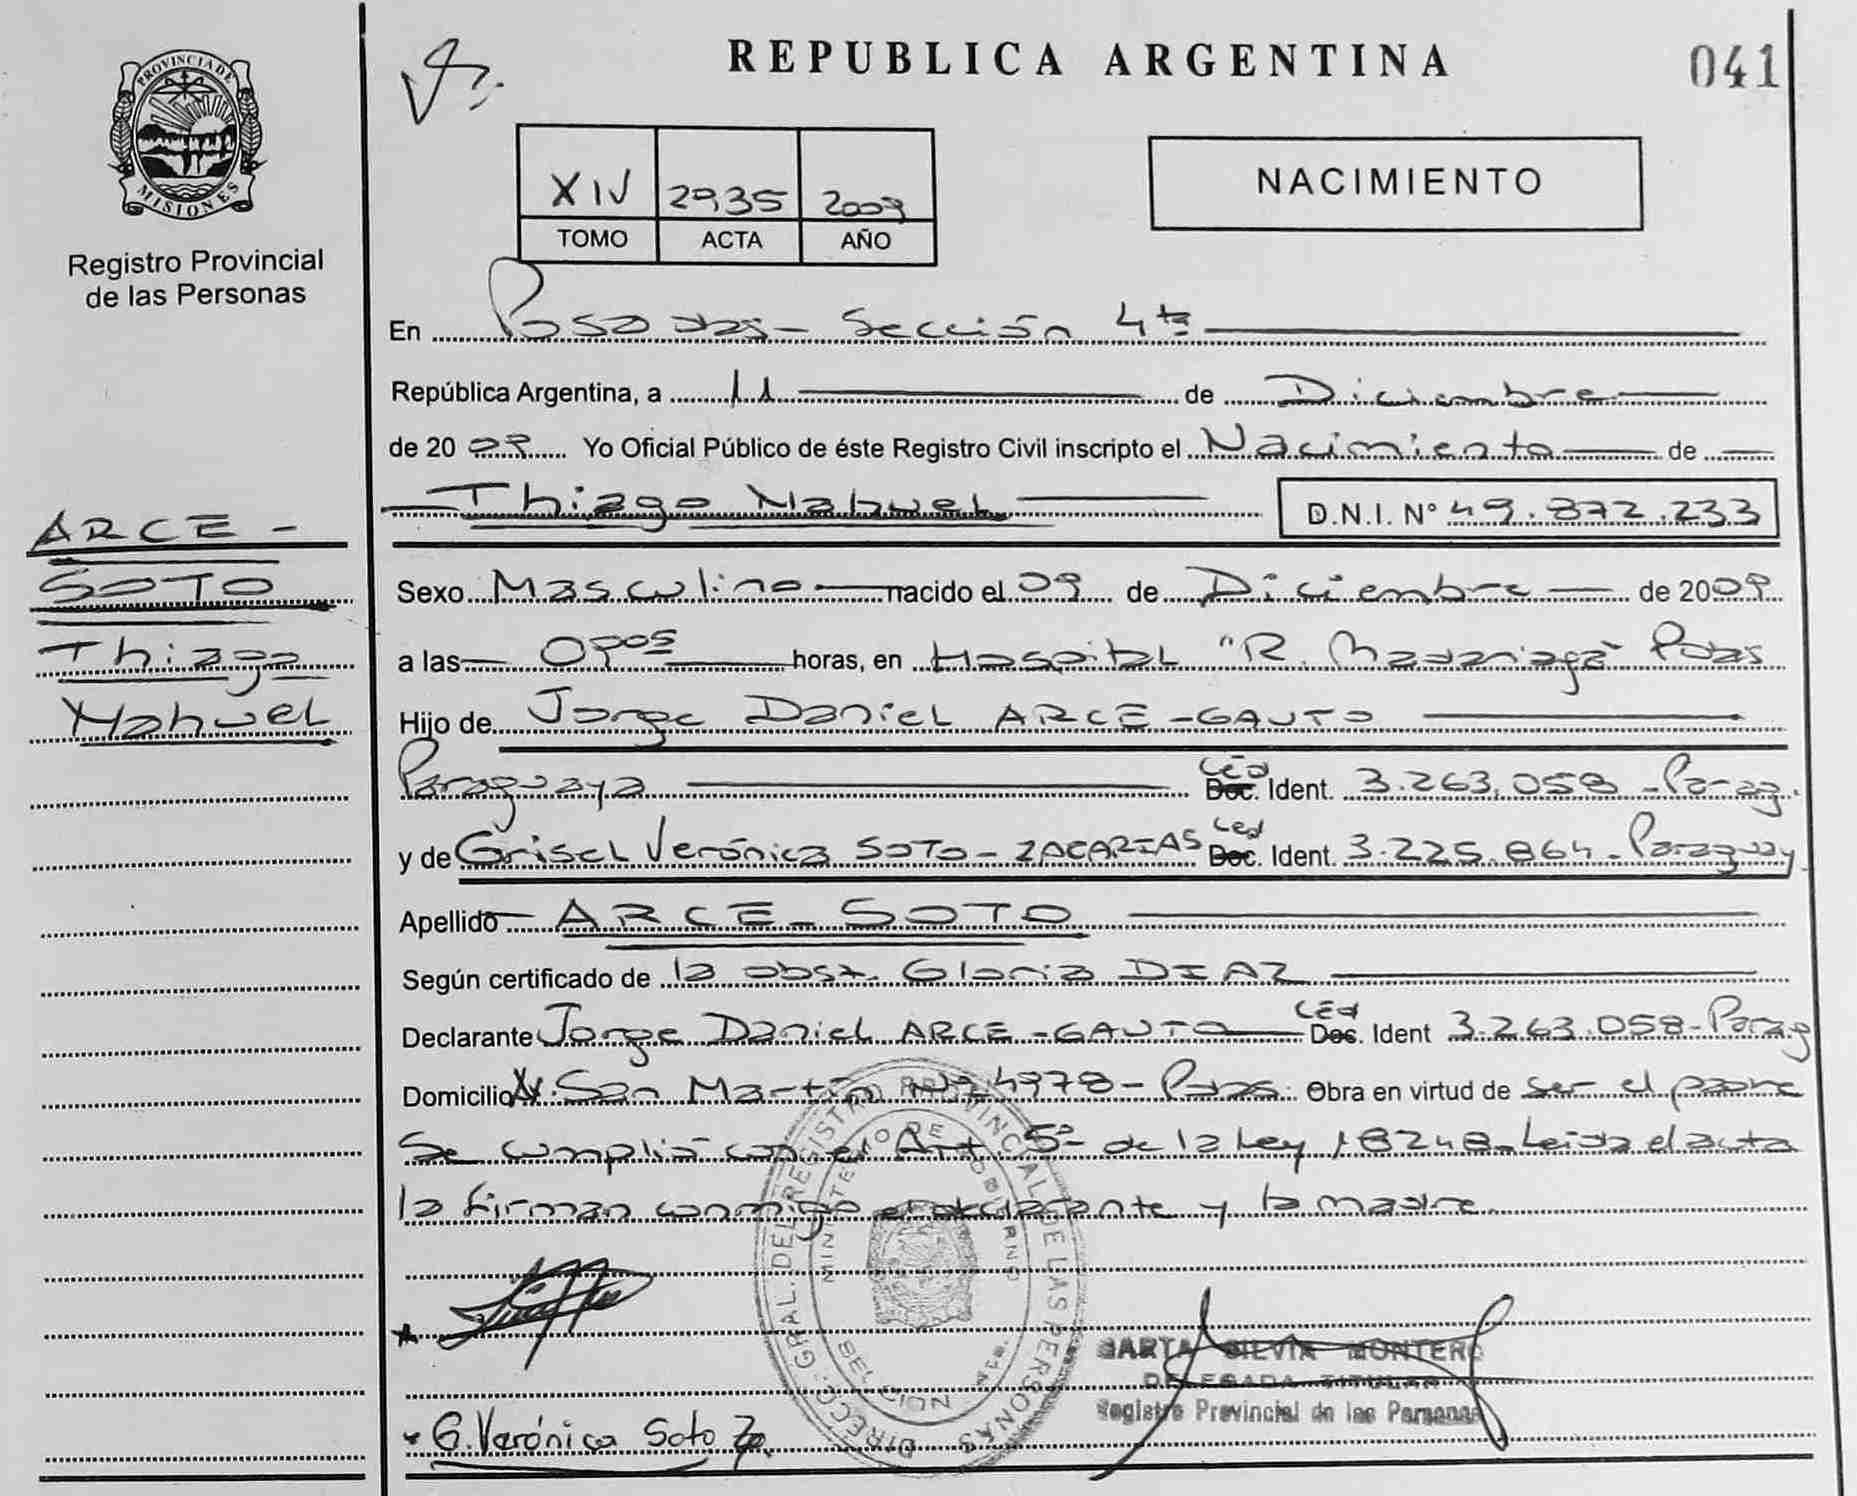 REPUBLICA ARGENTINA
041
PROVINCIA DE
MISIONES
Registro Provincial
de las Personas
XIV 2935 2009
TOMO ACTA AÑO
NACIMIENTO
En Posadas - Sección 4ta
República Argentina, a 11 de Diciembre
de 2009 Yo Oficial Público de éste Registro Civil inscripto el Nacimiento de
Thiago Nahuel D.N.I. N° 49.872.233
ARCE -
SOTO
Thiago
Nahuel
Sexo Masculino nacido el 09 de Diciembre de 2009
a las 0905 horas, en Hospital "R. Madariaga" Pdas
Hijo de Jorge Daniel ARCE - GAUTO
Paraguaya Céd Doc. Ident. 3.263.058 - Parag.
y de Grisel Verónica SOTO - ZACARIAS Ced Doc. Ident. 3.225.864 - Paraguay
Apellido ARCE - SOTO
Según certificado de la obst. Gloria DIAZ
Declarante Jorge Daniel ARCE - GAUTO Céd Doc. Ident 3.263.058 - Parag
Domicilio Av. San Martín Nº 4978 - Pdas. Obra en virtud de ser el padre
Se cumplió con el Art. 5º de la Ley 18248. Leida el acta
la firman conmigo el declarante y la madre.
DIRECC. GRAL. DEL REGISTRO PROVINCIAL DE LAS PERSONAS
MINISTERIO DE GOBIERNO
MARTA SILVIA MONTERO
DELEGADA TITULAR
Registro Provincial de las Personas
G. Verónica Soto Z.